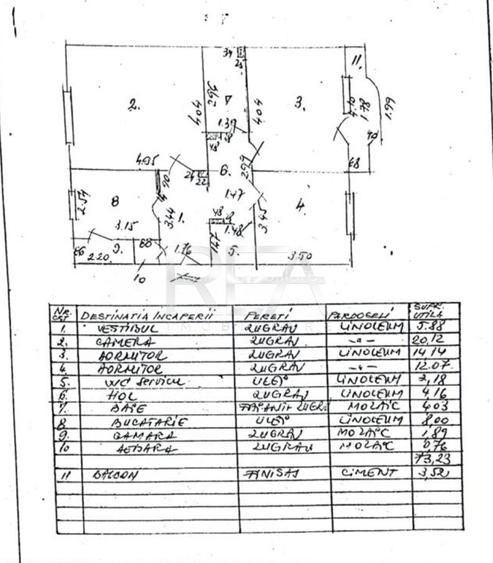 34
25
11.
2.
2.96
7
3.
4.04
4.04
4.10
1.78
1.99
1.39
48
40
68
4.95
6.
2.99
24
22
2.54
8
1.47
3.44
1.
48
3.42
4.
3.15
1.48
86
9.
68
1.76
1.47
5.
2.20
3.50
10
REA
NR. CRT DESTINATIA INCAPERII PERETI PARDOSELI SUPR. UTILA
1. VESTIBUL ZUGRAV LINOLEUM 5.88
2. CAMERA ZUGRAV -"- 20,12
3. DORMITOR ZUGRAV LINOLEUM 14,14
4. DORMITOR ZUGRAV -"- 12.07
5. WC serviciu ULEI LINOLEUM 2,18
6. HOL ZUGRAV LINOLEUM 4,16
7. BAIE ZUGRAV MOZAIC 4,03
8 BUCATARIE ULEI LINOLEUM 8,00
9. CAMARA ZUGRAV MOZAIC 1,89
10 ZUGRAV MOZAIC 0,76
73,23
11 BALCON FINISAJ CIMENT 3,52